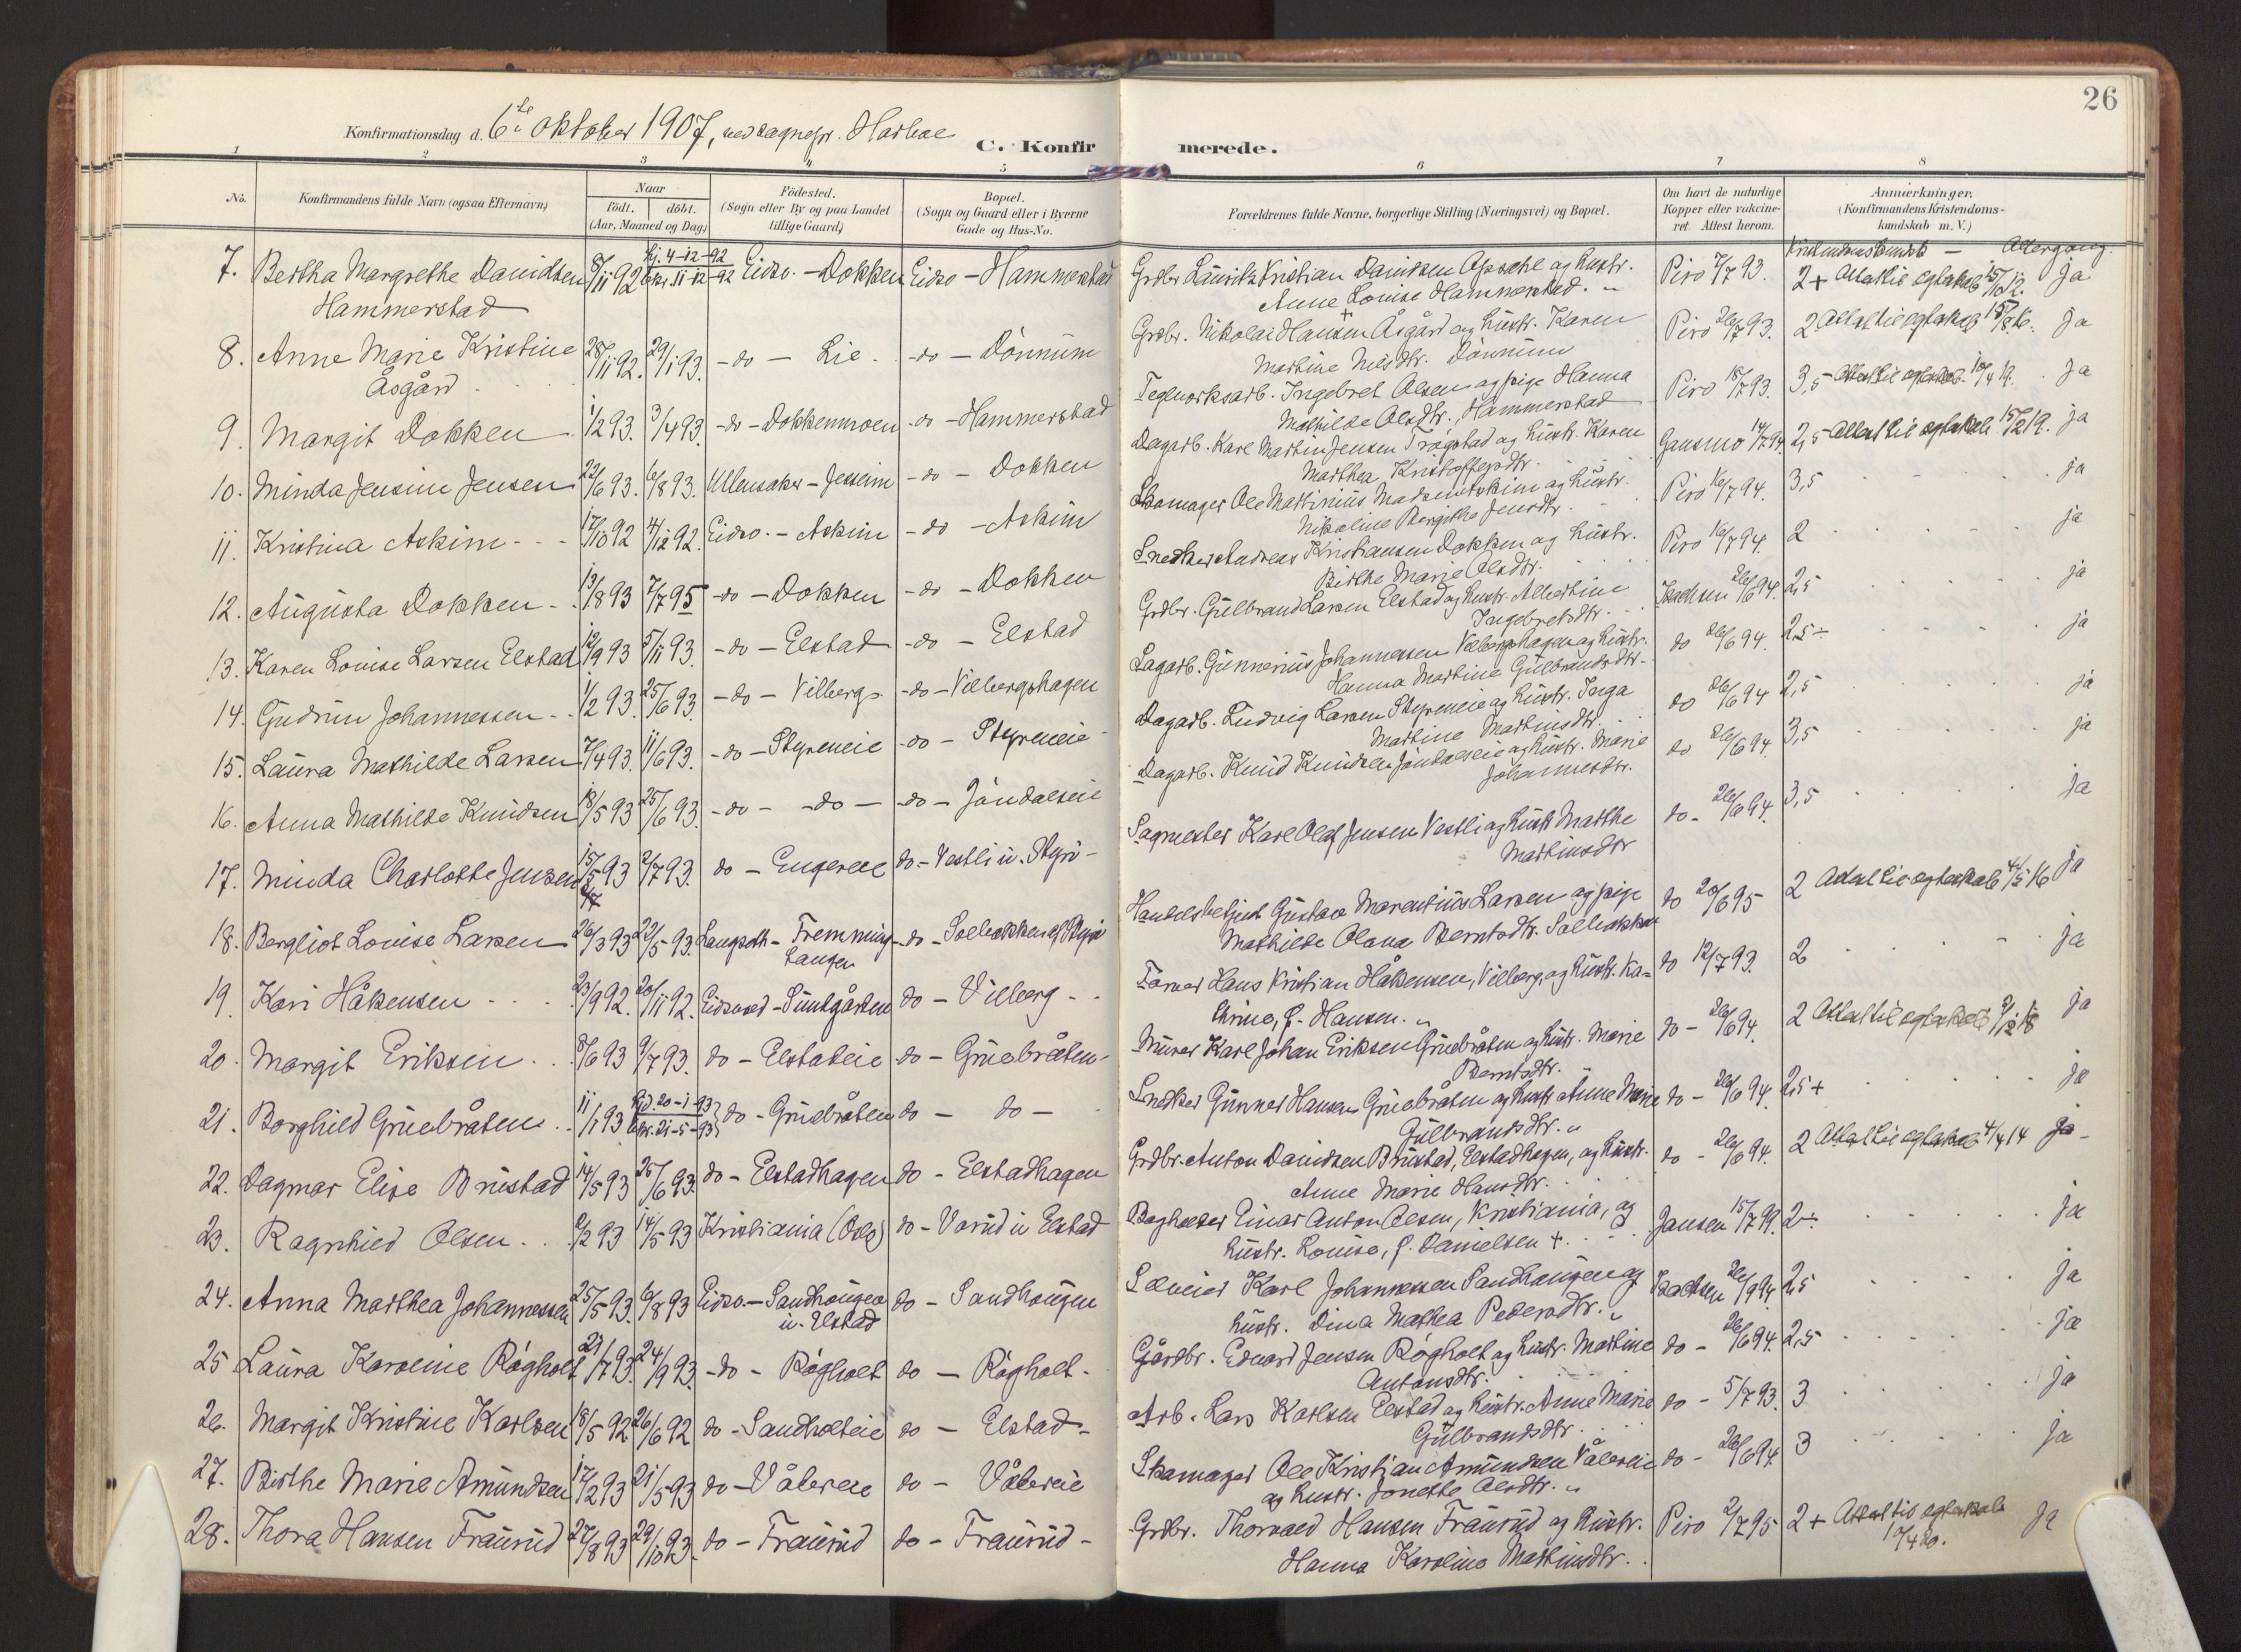 26
Konfirmationsdag d. 6te oktober 1907, ved sognepr. Harboe
C. Konfirmerede.
1 2 3 4 5 6 7 8
No.
Konfirmandens fulde Navn (ogsaa Efternavn)
Naar
født. døbt.
(Aar, Maaned og Dag)
Födested.
(Sogn eller By og paa Landet
tillige Gaard)
Bopæl.
(Sogn og Gaard eller i Byerne
Gade og Hus-No.
Forældrenes fulde Navne, borgerlige Stilling (Næringsvei) og Bopæl.
Om havt de naturlige
Kopper eller vakcine-
ret. Attest herom.
Anmærkninger.
(Konfirmandens Kristendoms-
kundskab m. V.)
Kristendomskundsk - Altergang
7. Bertha Margrethe Davidsen 8/11 92 Hj. 4-12-92 Eidsv. - Dokken Eidsv - Hammerstad Grdbr. Lauritz Kristian Davidsen Opsahl og hustr. Piro 7/7 93. 2+ Attest til egteskab 15/10 12. Ja
Hammerstad bekr. 11-12-92 Anne Louise Hammerstad. "
8. Anne Marie Kristine 28/11 92. 29/1 93. -do- Lie. -do- Dönnum Grdbr. Nikolai Hansen Åsgård og hustr. Karen Piro 26/7 93. 2 Attest til egteskab 15/8 16. Ja
Åsgård Martine Nilsdtr. Dönnum
9. Margit Dokken 1/2 93. 3/4 93. -do- Dokkenmoen -do- Hammerstad Teglverksarb. Ingebret Olsen og pige Hanna Piro 18/7 93. 3,5 Attest til egteskab 10/4 19. Ja
Mathilde Olsdtr., Hammerstad
10. Minda Jensine Jensen 22/6 93. 6/8 93. Ullensaker - Jessheim -do- Dokken Dagarb. Karl Martin Jensen Trøgstad og hustr. Karen Gausmo 14/7 94. 2,5 Attest til egteskab 15/12 19. ja
Marthea Kristoffersdtr.
11. Kristina Askim - - - 17/10 92 4/12 92. Eidsv. - Askim -do- Askim Skomager Ole Martinius Madsen Askim og hustr. Piro 16/7 94. 3,5 ja
Nikoline Bergithe Jensdtr.
12. Augusta Dokken - 13/8 93 7/7 95 -do- Dokken -do- Dokken Snedker Andreas Kristiansen Dokken og hustr. Piro 16/7 94. 2 ja
Birthe Marie Olsdtr.
13. Karen Louise Larsen Elstad 12/9 93 5/11 93. -do- Elstad -do- Elstad Grdbr. Gulbrand Larsen Elstad og hustr. Albertine Isachsen 26/6 94. 2,5 ja
Ingebretsdtr.
14. Gudrun Johannessen 1/2 93. 25/6 93. -do- Vilbergs -do- Vilbergshagen Sagarb. Gunnerius Johannessen Vilbergshagen og hustr. do 26/6 94. 2,5÷ ja
Hanna Martine Gulbrandsdtr.
15. Laura Mathilde Larsen 7/4 93. 11/6 93. -do- Styreneie -do- Styreneie Dagarb. Ludvig Larsen Styreneie og hustr. Inga do 26/6 94 2,5 ja
Martine Martinsdtr.
16. Anna Mathilde Knudsen 18/5 93 25/6 93. -do- -do- -do- Jöndalseie Dagarb. Knud Knudsen Jöndalseie og hustr. Marie do 26/6 94. 3,5 ja
Johannesdtr.
17. Minda Charlotte Jensen 15/5 93 2/7 93. do - Engereie do - Vestli u. Styri - Sagmester Karl Olaf Jensen Vestli og hustr. Marthe do - 26/6 94. 3,5 ja
Martinsdtr
18. Bergliot Louise Larsen 26/3 93 22/5 93. Langseth - Fremming -do- Solbakken af Styri Handelsbetjent Gustav Marentius Larsen og pige do 20/6 95 2 Attest til egteskab 4/5 16 Ja
langen Mathilde Olava Berntsdtr. Solbakken
19. Kari Håkensen 23/9 92. 20/11 92. Eidsvold - Sundgården do - Vilberg Farver Hans Kristian Håkensen, Vilberg, og hustr. Ka= do 12/7 93. 2 ja
thrine, f. Hansen. "
20. Margit Eriksen 8/6 93 9/7 93. do - Elstadeie do - Gruebråten Murer Karl Johan Eriksen Gruebråten og hustr. Marie do - 26/6 94. 2 Attest til egteskab 9/12 18 ja
Berntsdtr.
21. Borghild Gruebråten 11/1 93 Hjd. 20-1-93 do - Gruebråten do - do - Snedker Gunner Hansen Gruebråten og hustr Anne Marie do - 26/6 94. 2,5+ ja
bekr. 21-5-93 Gulbrandsdtr. "
22. Dagmar Elise Brustad 14/5 93 25/6 93. do - Elstadhagen do - Elstadhagen Grdbr. Anton Davidsen Brustad, Elstadhagen, og hustr. do - 26/6 94. 2 Attest til egteskab 4/4 14 Ja
Anne Marie Hansdtr.
23. Ragnhild Olsen 2/2 93 14/5 93 Kristiania (Oslo) do - Vorud u Elstad Bogholder Einar Anton Olsen, Kristiania, og Jansen 15/7 99. 2÷ ja
hustr. Louise, f. Danielsen +
24. Anna Marthea Johannessen 25/5 93. 6/8 93 Eidsv. - Sandhaugen do - Sandhaugen Selveier Karl Johannessen Sandhaugen og Isachsen 26/9 94. 2,5 ja
u. Elstad hustr. Dina Mathea Pedersdtr. "
25 Laura Karoline Rögholt 23/7 93. 24/9 93. -do- Rögholt do - Rögholt. Gårdbr. Edvard Jensen Rögholt og hustr. Martine do - 26/6 94. 2,5 ja
Antonsdtr.
26. Margit Kristine Karlsen 18/5 92 26/6 92 do - Sandholteie do - Elstad Arb. Lars Karlsen Elstad og hustr. Anne Marie do - 5/7 93. 3 ja
Gulbrandsdtr
27. Birthe Marie Amundsen 17/2 93 21/5 93 do - Vålereie do - Vålereie Skomager Ole Kristian Amundsen Vålereie do - 26/6 94. 3 ja
og hustr. Jonette Olsdtr. "
28. Thora Hansen Fraurud 27/8 93 29/10 93. do - Fraurud do - Fraurud - Grdbr. Thorvald Hansen Fraurud og hustr. Piro 2/7 95 2+ Attest til egteskab Ja
Hanna Karoline Martinsdtr. 10/4 20.